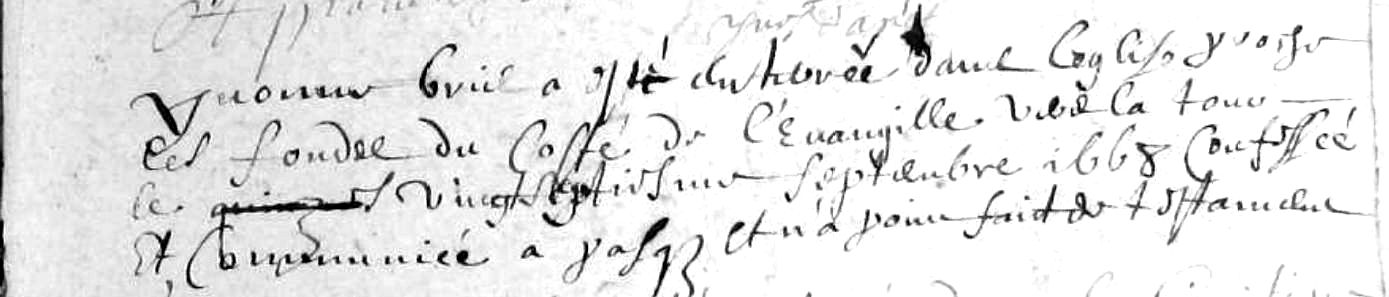 bril a esté enterrée dans leglise proche
les fonds du costé de l'Evangille vers la tour
le vingt septiesme septembre 1668 confessée
Et Communiée a pasq et n'a poinct faict de testament